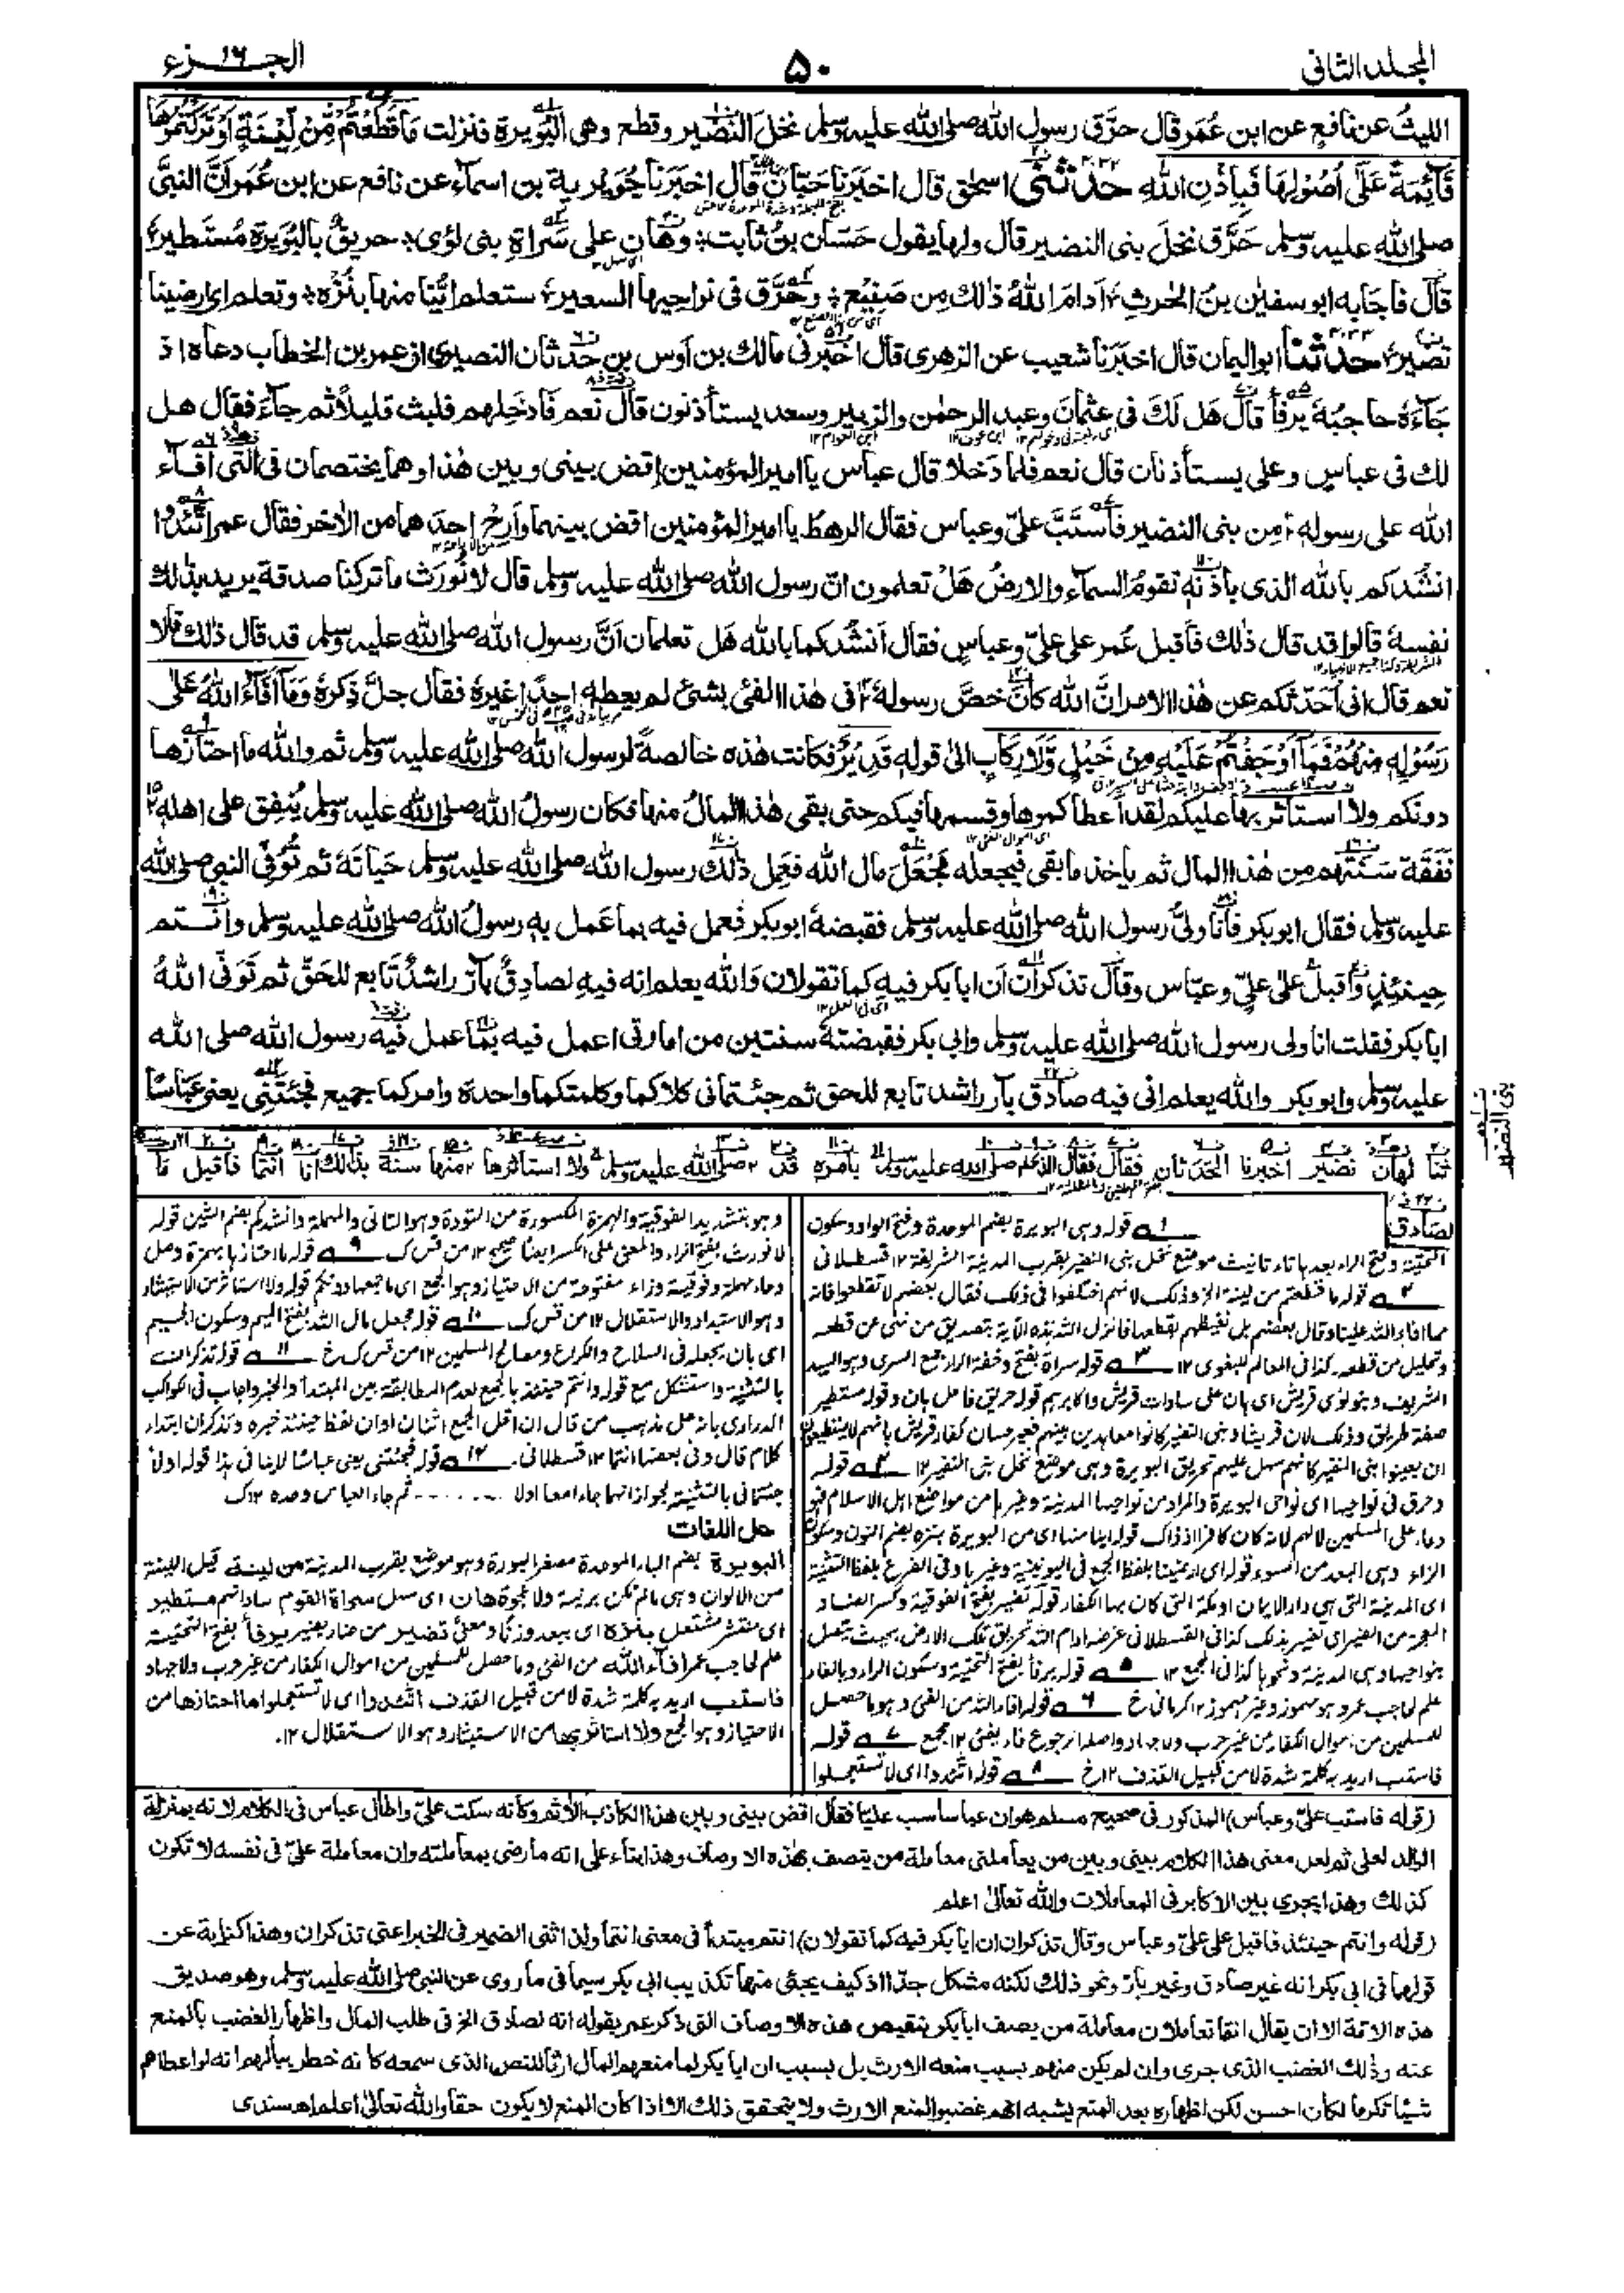 المجلد الثانی
۵۰
الجزء ۱۶
الليثُ عن نافعٍ عن ابن عُمَر قال حرَّق رسول الله صلى الله عليه وسلم نخلَ النَّضِير وقطع وهى البُوَيرة فنزلت مَا قَطَعْتُمْ مِّنْ لِّيْنَةٍ اَوْ تَرَكْتُمُوْهَا
قَآئِمَةً عَلٰٓى اُصُوْلِهَا فَبِاِذْنِ اللهِ حَدَّثَنِي اسحٰق قال اخبَرَنا حَبّان قال اخبَرَنا جُوَيرية بن اسمآء عن نافع عن ابن عُمَر اَنَّ النبىَّ
صلى الله عليه وسلم حَرَّق نخلَ بنى النضير قال ولها يقول حَسّان بنُ ثابت ؛ وهَان على سَراةِ بنى لؤى ؛ حريقٌ بالبُوَيرة مُستَطيرٌ ؛
قال فاجابه ابو سفيٰن بنُ الحٰرث ؛ اَدامَ اللهُ ذٰلك مِن صَنِيْعٍ ؛ وحَرَّق فى نواحيها السعير ؛ ستعلم ايُّنا منها بنُزْهٍ ؛ وتعلم اى ارضينا
تضير ؛ حدثنا ابو اليمان قال اخبَرَنا شعيب عن الزهرى قال اخبَرنى مالك بن اَوس بن حَدَثان النصيرى ان عمر بن الخطاب دعاه اذ
جَآءَهٗ حاجبُهٗ يَرفَأ قال هَل لَكَ فى عثمانَ وعبد الرحمٰن والزبير وسعد يستأذنون قال نعم فَادخِلهم فلبث قليلاً ثم جآءَ فقال هل
لك فى عباسٍ وعلى يستأذنان قال نعم فلما دَخلا قال عباس يا امير المؤمنين اِقض بينى وبين هٰذا وهما يختصمان فى التى افآء
الله على رسولهٖ من بنى النضير فاستَبَّ علىّ وعباس فقال الرهط يا امير المؤمنين اقض بينهما واَرِحْ احدَهما من الاٰخر فقال عمر اتَّئدُوا
انشُدكم بالله الذى باذنهٖ تقومُ السمآء والارضُ هَلْ تعلمون انّ رسول الله صلى الله عليه وسلم قال لا نُورَث ما تركنا صدقة يريد بذلك
نفسهٗ قالوا قد قال ذٰلك فاَقبل عُمر على علىّ وعباسٍ فقال اَنشُدكما بالله هَل تعلمان اَنَّ رسول الله صلى الله عليه وسلم قد قال ذٰلك قالا
نعم قال انى اُحَدّثكم عن هٰذا الامر انَّ الله كان خصَّ رسولهٗ فى هٰذا الفئ بشئ لم يعطه احدًا غيرهٗ فقال جلّ ذِكرهٗ وَمَآ اَفَآءَ اللهُ عَلٰى
رَسُوْلِهٖ مِنْهُمْ فَمَآ اَوْجَفْتُمْ عَلَيْهِ مِنْ خَيْلٍ وَّلَا رِكَابٍ الىٰ قولهٖ قَدِيْرٌ فكانت هٰذه خالصةً لرسول الله صلى الله عليه وسلم ثم والله ما احتازها
دونكم ولا استاثر بها عليكم لقد اَعطاكموها وقسمها فيكم حتى بقى هٰذا المالُ منها فكان رسولُ الله صلى الله عليه وسلم يُنفِق على اهلهٖ
نفقَةَ سَنَتهم من هٰذا المال ثم ياخذ ما بقى فيجعله مَجْعَلَ مال الله فعَمِل ذٰلك رسول الله صلى الله عليه وسلم حَياتَهٗ ثم تُوُفّى النبى صلى الله
عليه وسلم فقال ابو بكر فانا ولىّ رسول الله صلى الله عليه وسلم فقبضهٗ ابو بكر فعمل فيه بما عمل بهٖ رسولُ الله صلى الله عليه وسلم وانتم
حِينئذٍ واَقبلَ علىٰ علىّ وعبّاس وقال تذكرانِ اَن ابا بكر فيهِ كما تقولان وَالله يعلم انه فيهِ لصادِقٌ بآرّ راشدٌ تابع للحَقّ ثم تَوَفّى اللهُ
ابا بكر فقلت انا ولى رسول الله صلى الله عليه وسلم وابى بكر فقبضتهٗ سنتين من امارتى اعمل فيه بما عمل فيه رسول الله صلى الله
عليه وسلم وابو بكر والله يعلم انى فيه صادق بآر راشد تابع للحق ثم جئتمانى كلاكما وكلمتكما واحدة وامركما جميع فجئتَنِى يعنى عَبّاسًا
بنى النضير
ثنا لهان نضير اخبرنا الحَدَثان فقال فقال صلى الله عليه وسلم بامره قد صلى الله عليه وسلم ولا استاثرها منها سنة بذالك انا انتما فاقبل
لصادق
۱ قوله وہى البويرة بضم الموحدة وفتح الواو وسكون
التحتية وفتح الراء بعدها تاء تانيث موضع نخل بنى النضير بقرب المدينة الشريفة ۱۲ قسطلانى
۲ قوله ما قطعتم من لينة الخ وذلك لانهم اختلفوا فى ذلك فقال بعضهم لا تقطعوا فانه
مما افاء الله علينا وقال بعضهم بل نغيظهم بقطعها فانزل الله هذه الآية بتصديق من نهى عن قطعه
وتحليل من قطعه كذا فى المعالم للبغوى ۱۲ ۳ قوله سراة بفتح وخفة الراء جمع السرى وهو السيد
الشريف وبنو لؤى قريش اى هان على سادات قريش واكابرهم قوله حريق فاعل هان وقوله مستطير
صفة حريق وذلك لان قريشا وبنى النضير كانوا معاهدين بينهم فعير حسان كفار قريش بانهم لا يستطيعون
ان يعينوا بنى النضير كانهم سهل عليهم تحريق البويرة وهى موضع نخل بنى النضير ۱۲ ۴ قوله
وحرق فى نواحيها اى نواحى البويرة والمراد من نواحيها المدينة وغيرها من مواضع اهل الاسلام فهو
دعاء على المسلمين لا لهم لانه كان كافرا اذ ذاك قوله اينا منها اى من البويرة بنزه بضم النون وسكون
الزاء وهى البعد من السوء قوله اى ارضينا بلفظ الجمع فى اليونينية وغيرها وفى الفرع بلفظ التثنية
اى المدينة التى هى دار الايمان او مكة التى كان بها الكفار قوله تضير بفتح الفوقية وكسر الضاد
المعجمة من الضير اى تضير بذلك كذا فى القسطلانى غرضه ادام الله تحريق تلك الارض بحيث يتصل
بنواحيها وهى المدينة ونحوها كذا فى المجمع ۱۲ ۵ قوله يرفأ بفتح التحتية وسكون الراء وبالفاء
علم لحاجب عمر وهو مهموز وغير مهموز ۱۲ كرمانى خ ۶ قوله افاء الله من الفئ وهو ما حصل
للمسلمين من اموال الكفار من غير حرب ولا جهاد واصله الرجوع فاء يفئ ۱۲ مجمع ۷ قوله
فاستب اريد به كلمة شدة لا من قبيل القذف ۱۲ خ ۸ قوله اتئدوا اى لا تستعجلوا
وهو بتشديد الفوقية والهمزة المكسورة من التودة وهو التانى والمهملة وانشدكم بضم الشين قوله
لا نورث بفتح الراء والمعنى على الكسر ايضا صحيح ۱۲ من قس ك ۹ قوله ما احتازها بهمزة وصل
وحاء مهملة وفوقية وزاء مفتوحة من الاحتياز وهو الجمع اى ما جمعها دونكم قوله ولا استاثر من الاستيثار
وهو الاستبداد والاستقلال ۱۲ من قس ك ۱۰ قوله مجعل مال الله بفتح الميم وسكون الجيم
اى بان يجعله فى السلاح والكراع ومصالح المسلمين ۱۲ من قس ك خ ۱۱ قوله تذكران
بالتثنية واستشكل مع قوله وانتم حينئذ بالجمع لعدم المطابقة بين المبتدأ والخبر واجاب فى الكواكب
الدرارى بانه على مذهب من قال ان اقل الجمع اثنان او ان لفظ حينئذ خبره وتذكران ابتداء
كلام قال وفى بعضها انتما ۱۲ قسطلانى ۱۲ قوله فجئتنى يعنى عباسا لا ينافى هذا قوله اولا
جئتمانى بالتثنية لجواز انهما جاءا معا اولا ------- ثم جاء العباس وحده ۱۲ ك
حل اللغات
البويرة بضم الباء الموحدة مصغر البورة وهو موضع بقرب المدينة من لينة قيل اللينة
من الالوان وهى ما لم تكن برنية ولا عجوة هان اى سهل سراة القوم ساداتهم مستطير
اى منتشر مشتعل بنزه اى ببعد وزنًا ومعنًى تضير من ضار يضير يرفأ بفتح التحتية
علم لحاجب عمر افآء الله من الفئ وما حصل للمسلمين من اموال الكفار من غير حرب ولا جهاد
فاستب اريد به كلمة شدة لا من قبيل القذف اتئدوا اى لا تستعجلوا ما احتازها من
الاحتياز وهو الجمع ولا استاثر بها من الاستيثار وهو الاستقلال ۱۲.
(قوله فاستب علىّ وعباس) المذكور فى صحيح مسلم هو ان عباسا سب عليًا فقال اقض بينى وبين هذا الكاذب الاثم وكأنه سكت علىّ واطال عباس فى الكلام لانه بمنزلة
الوالد لعلى ثم لعل معنى هذا الكلام بينى وبين من يعاملنى معاملة من يتصف بهٰذه الاوصاف وهذا بناء على انه ما رضى بمعاملته وان معاملة علىّ فى نفسه لا تكون
كذلك وهذا يجرى بين الاكابر فى المعاملات والله تعالىٰ اعلم
(قوله وانتم حينئذ فاقبل على علىّ وعباس وقال تذكران ان ابا بكر فيه كما تقولان) انتم مبتدأ فى معنى انتما ولذا اثنى الضمير فى الخبر اعنى تذكران وهذا كناية عن
قولهما فى ابى بكر انه غير صادق وغير بارّ ونحو ذلك لكنه مشكل جدًّا اذ كيف يجئ منهما تكذيب ابى بكر سيما فى ما روى عن النبى صلى الله عليه وسلم وهو صديق
هذه الامة الا ان يقال انهما تعاملان معاملة من يصف ابا بكر بنقيض هذه الاوصاف التى ذكر عمر بقوله انه لصادق الخ فى طلب المال واظهار الغضب بالمنع
عنه وذٰلك الغضب الذى جرى وان لم يكن منهم بسبب منعه الارث بل بسبب ان ابا بكر لما منعهم المال ارثا للنص الذى سمعه كانه خطر ببالهم انه لو اعطاهم
شيئا تكرمًا لكان احسن لكن اظهاره بعد المنع يشبه انهم غضبوا لمنع الارث ولا يتحقق ذلك الا اذا كان المنع لا يكون حقًّا والله تعالىٰ اعلم اهـ سندى